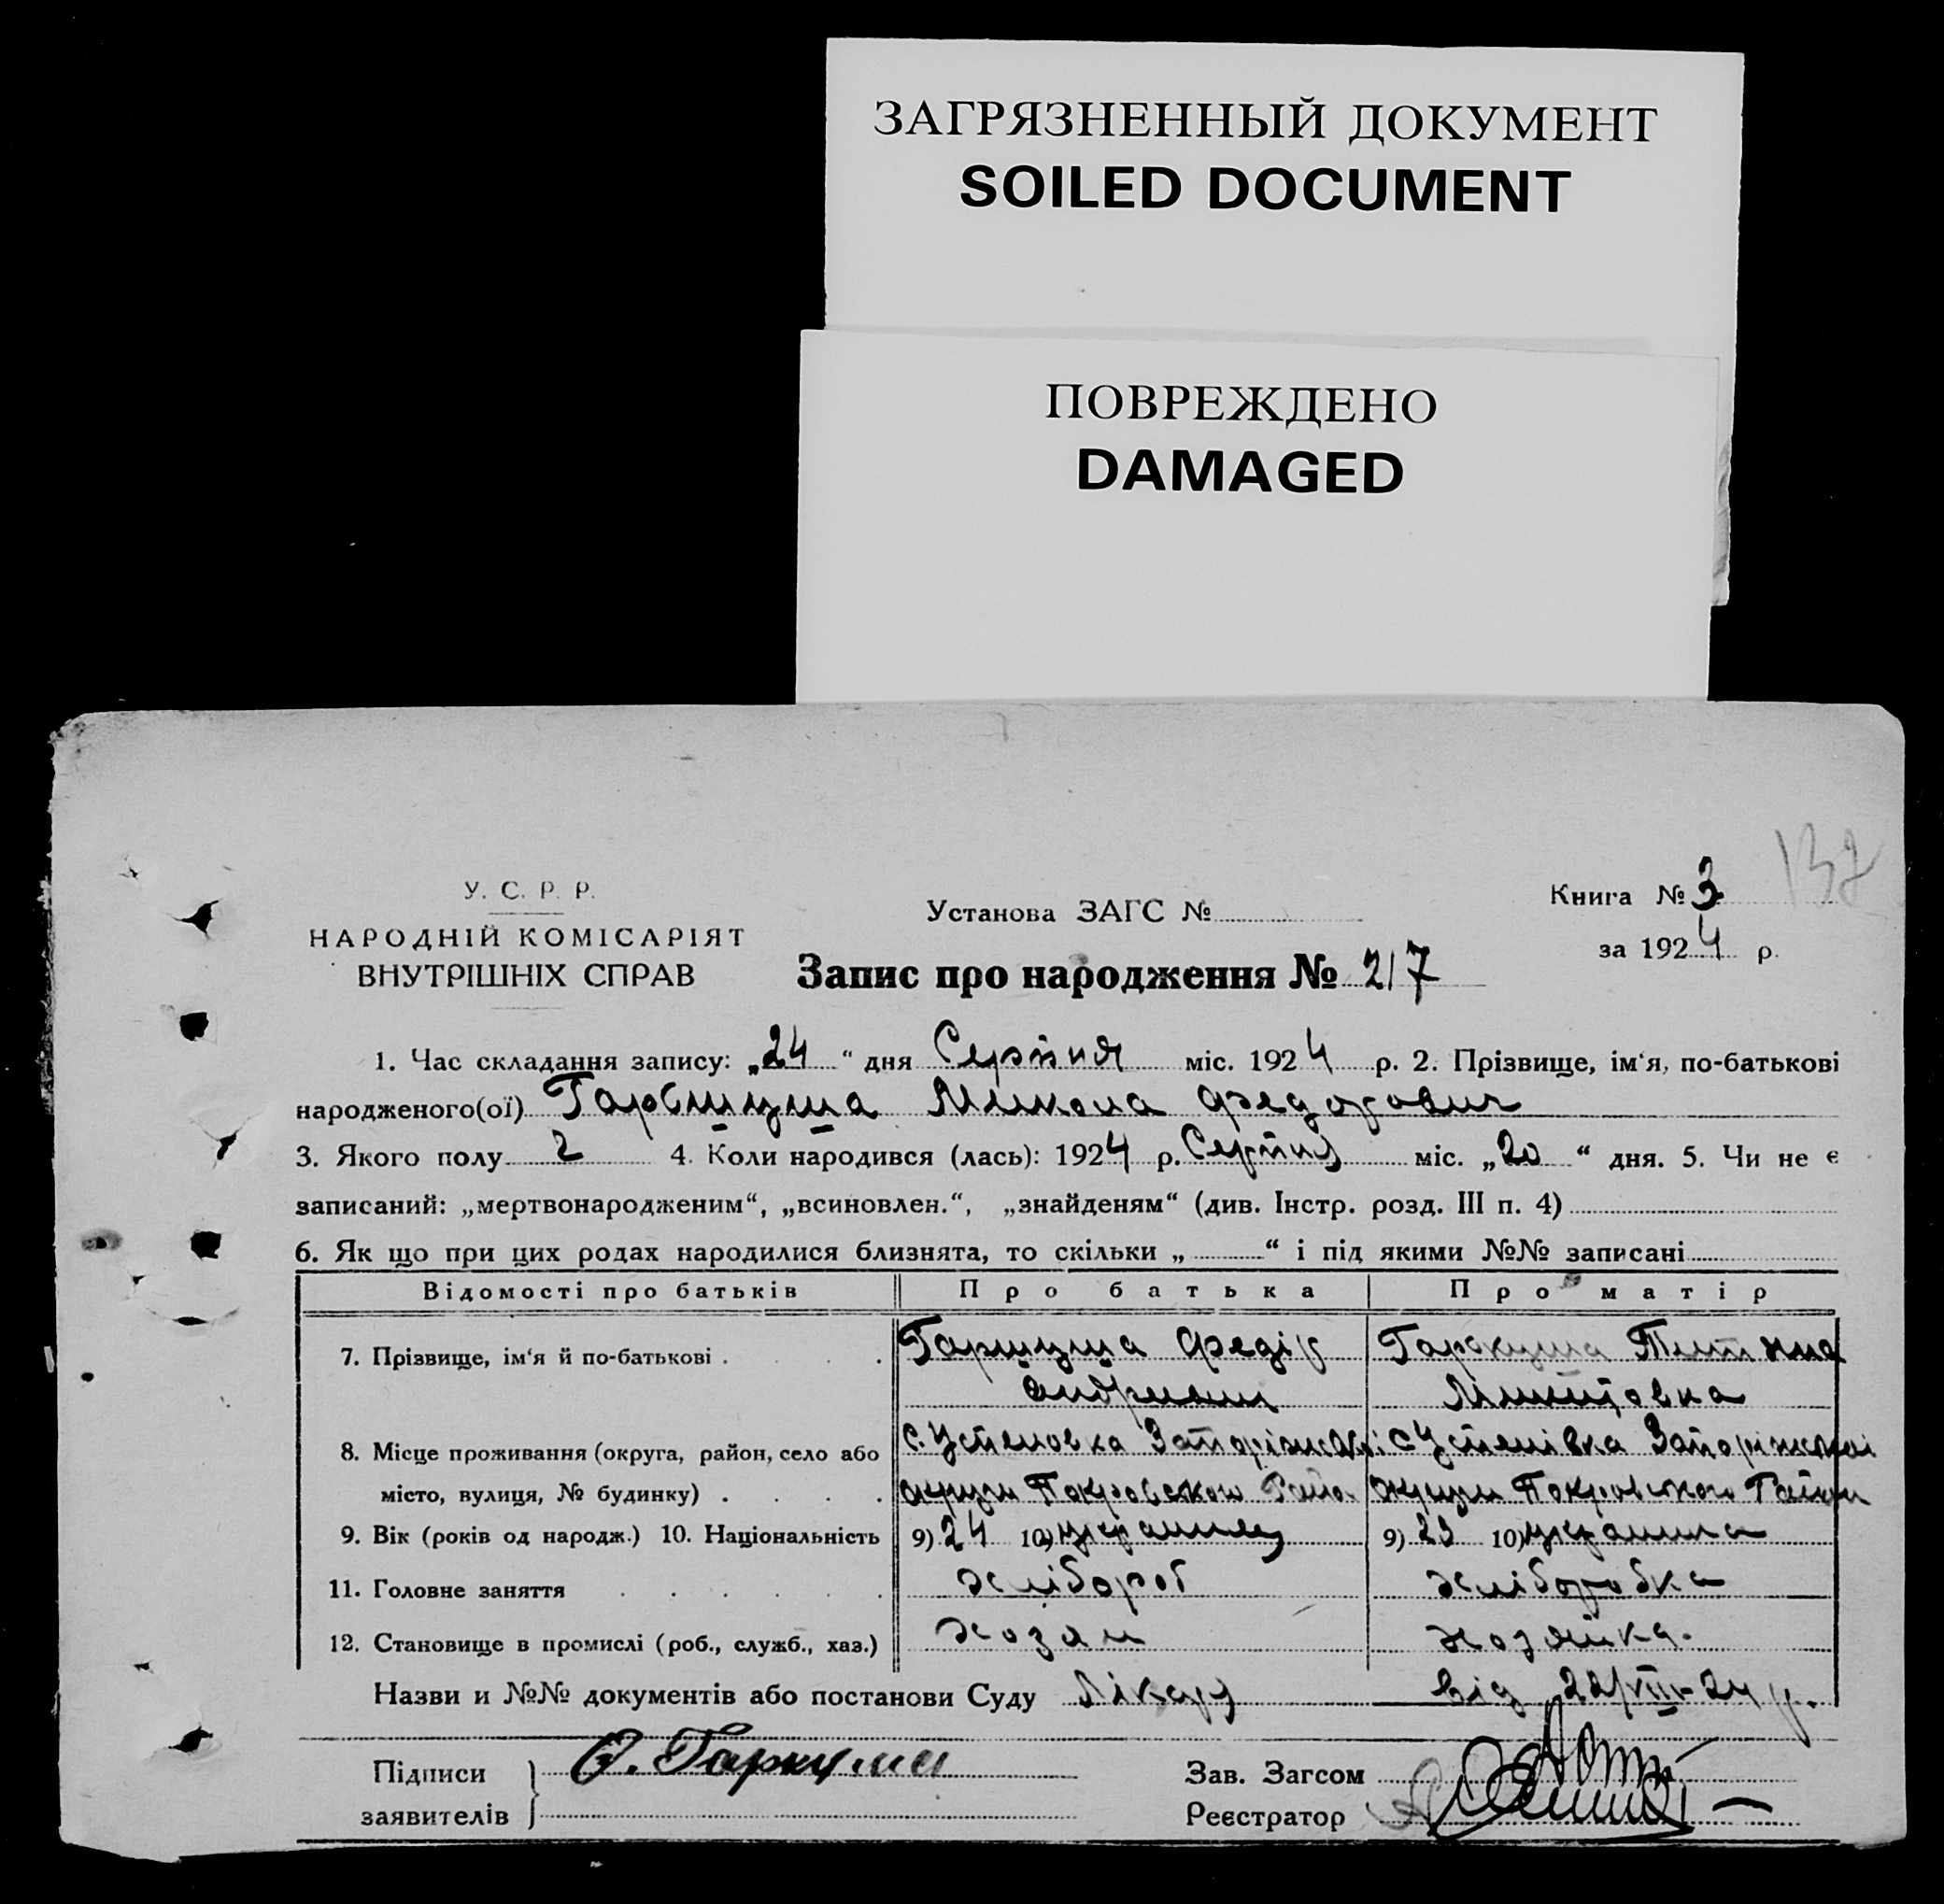 ЗАГРЯЗНЕННЫЙ ДОКУМЕНТ
SOILED DOCUMENT
ПОВРЕЖДЕНО
DAMAGED
137
У. С. Р. Р.
НАРОДНІЙ КОМІСАРІЯТ
ВНУТРІШНІХ СПРАВ
Установа ЗАГС №
Книга № 3
за 1924 р.
Запис про народження № 217
1. Час складання запису: „24“ дня Серпня міс. 1924 р. 2. Прізвище, ім‘я, по-батькові
народженого(ої) Микола Федорович
3. Якого полу 2 4. Коли народився (лась): 1924 р. Серпня міс. „20“ дня. 5. Чи не є
записаний: „мертвонародженим“, „всиновлен.“, „знайденям“ (див. Інстр. розд. III п. 4)
6. Як що при цих родах народилися близнята, то скільки „ “ і під якими №№ записані
Відомості про батьків Про батька Про матір
7. Прізвище, ім‘я й по-батькові . . . . Гаркуша Федір Гаркуша
8. Місце проживання (округа, район, село або с. Устеновка с. Устенівка Запоріжськоі
місто, вулиця, № будинку) . . . . округи Покровського округи Покровського Району
9. Вік (років од народж.) 10. Національність 9) 24 10) українец 9) 23 10)
11. Головне заняття . . . . . . хлібороб хліборобка
12. Становище в промислі (роб., служб., хаз.) хозяин хозяйка.
Назви и №№ документів або постанови Суду від 22/VIII-24 р.
Підписи
заявителів
Ф. Гаркуша
Зав. Загсом
Реєстратор